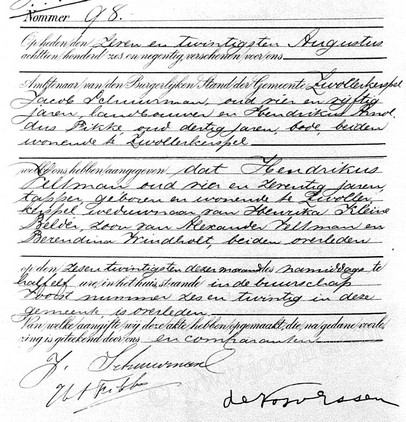 Nommer 98.
Op heden den Zeven en twintigsten Augustus
achttien honderd zes en negentig, verschenen voor ons
Ambtenaar van den Burgerlijken Stand der Gemeente Zwollerkerspel
Jacob Schuurman, oud vier en vijftig
jaren, landbouwer en Hendrikus Arnol
dus Fikke oud dertig jaren, bode, beiden
wonende te Zwollerkerspel
welke ons hebben aangegeven, dat Hendrikus
Veltman oud vier en zeventig jaren,
tapper, geboren en wonende te Zwoller
kerspel, weduwnaar van Henrika Kleine
Belder, zoon van Alexander Veltman en
Berendina Windholt, beiden overleden
op den zesentwintigsten dezer maand des namiddags te
half elf ure, in het huis staande in de buurschap
Voorst nummer zes en twintig in deze
gemeente is overleden.
Van welke aangifte wij deze akte hebben opgemaakt, die, na gedane voorle
zing is geteekend door ons en comparanten.
J. Schuurman
H A Fikke
de Vos v Essen